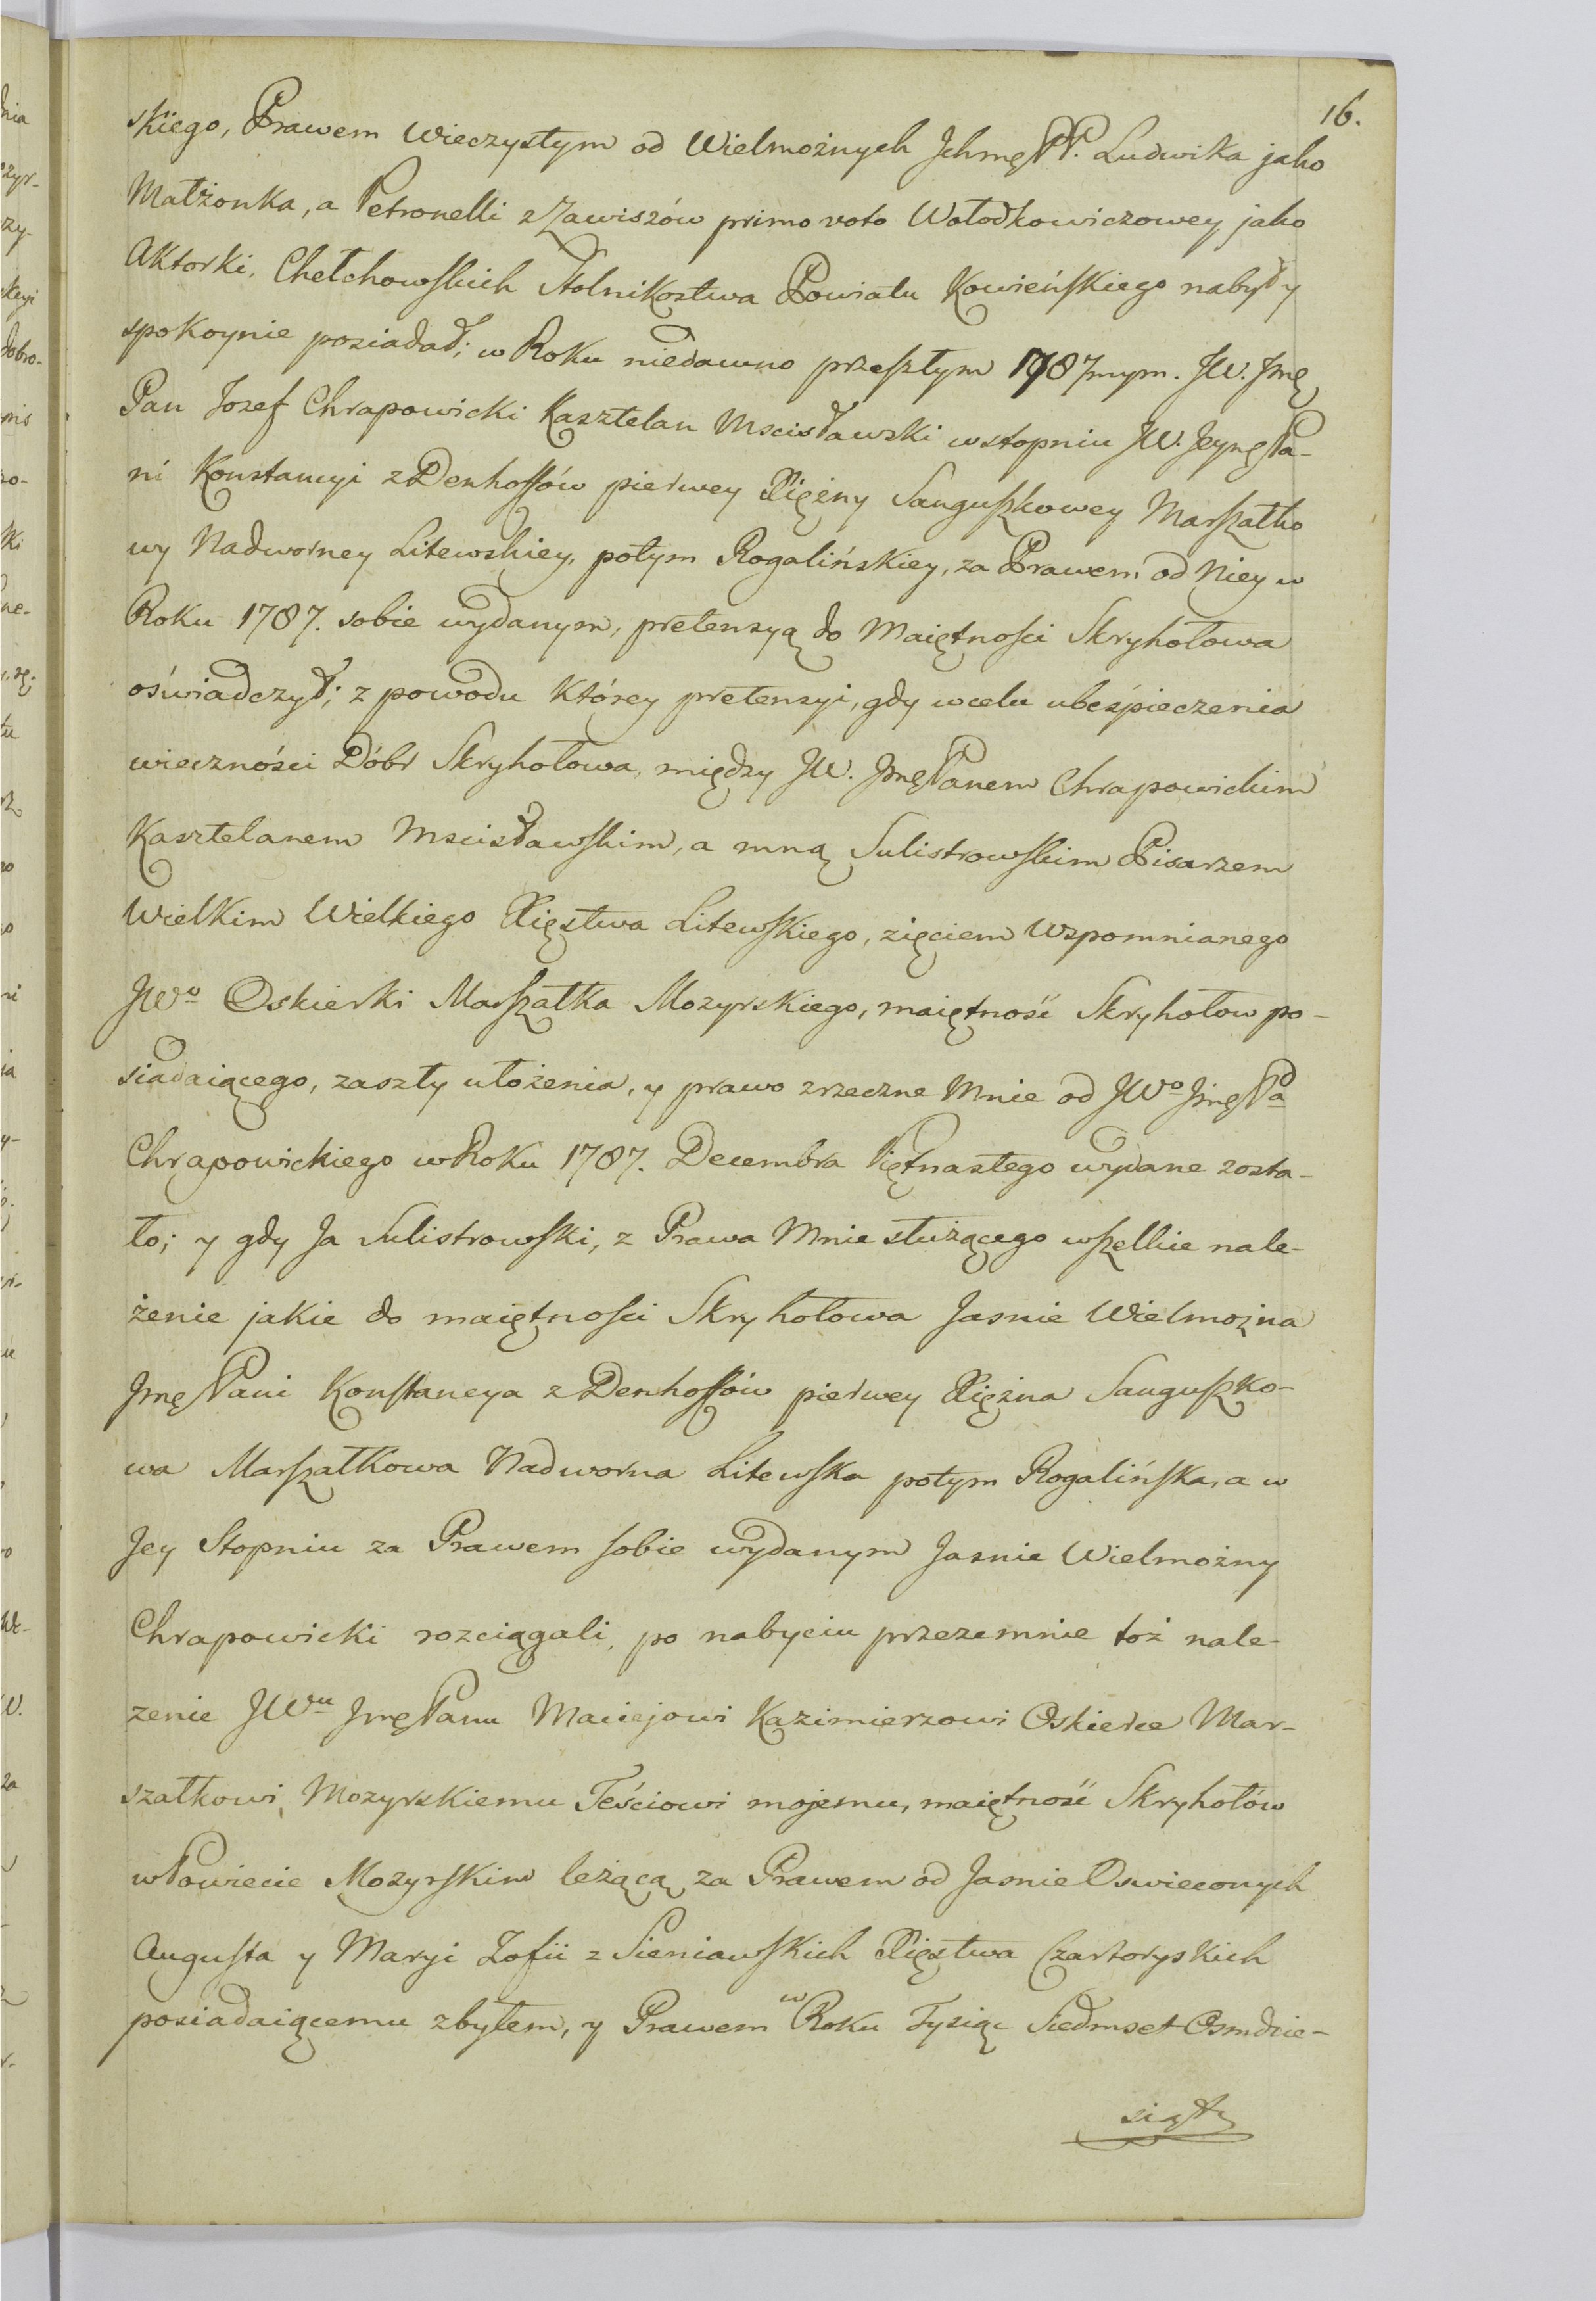 16.
skiego, Prawem Wieczystym od Wielmożnych JchmęPP. Ludwika jako
Małżonka, a Petronelli z Zawiszów primo voto Wołodkowiczowey jako
Aktorki, Chełchowskich Stolnikostwa Powiatu Kowieńskiego nabyty
spokoynie posiadał; w Roku niedawno przeszłym 1787mym. JW. Jmę
Pan Jozef Chrapowicki Kasztelan Mscisławski w stopniu JW. JeymęPa-
ni Konstancyi z Denhoffów pierwey Xiężny Sanguszkowey Marszałko
wy Nadworney Litewskiey, potym Rogalińskiey, za Prawem od Niey w
Roku 1787. sobie wydanym, pretensyą do Maiętności Skryhołowa
oświadczył; z powodu którey pretensyi, gdy w celu ubespieczenia
wieczności Dóbr Skryhołowa, między JW. JmęPanem Chrapowickim
Kasztelanem Mscisławskim, a mną Sulistrowskim Pisarzem
Wielkim Wielkiego Xięstwa Litewskiego, zięciem wspomnianego
JWo Oskierki Marszałka Mozyrskiego, maiętność Skryhołow po-
siadaiącego, zaszły ułożenia, y prawo zrzeczne Mnie od JWo JmęPa
Chrapowickiego w Roku 1787. Decembra Piętnastego wydane zosta-
ło; y gdy Ja Sulistrowski, z Prawa Mnie służącego wszelkie nale-
żenie jakie do maiętności Skryhołowa Jasnie Wielmożna
JmęPani Konstancya z Denhoffów pierwey Xiężna Sanguszko-
wa Marszałkowa Nadworna Litewska potym Rogalińska, a w
Jey Stopniu za Prawem sobie wydanym Jasnie Wielmożny
Chrapowicki rozciągali, po nabyciu przezemnie toż nale-
zenie JWu JmęPanu Maciejowi Kazimierzowi Oskierce Mar-
szałkowi Mozyrskiemu Teściowi mojemu, maiętność Skryhołów
w Powiecie Mozyrskim leżącą za Prawem od Jasnie Oswieconych
Augusta y Maryi Zofii z Sieniawskich Xięstwa Czartoryskich
posiadaiącemu zbyłem, y Prawem w Roku Tysiąc Siedmset Osmdzie-
siąty